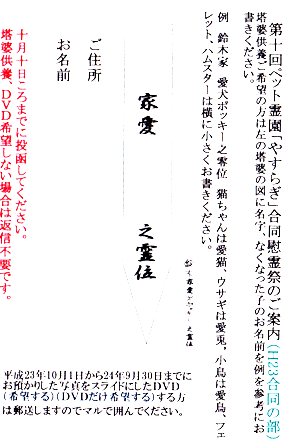 第十回ペット霊園「やすらぎ」合同慰霊祭のご案内(H23合同の部)
塔婆供養ご希望の方は左の塔婆の図に名字、なくなった子のお名前を例を参考にお
書きください。
例 鈴木家 愛犬ポッキー之霊位 猫ちゃんは愛猫、ウサギは愛兎、小鳥は愛鳥、フェ
レット、ハムスターは横に小さくお書きください。
家愛 之霊位
ご住所
お名前
十月十日ころまでに投函してください。
塔婆供養、DVD希望しない場合は返信不要です。
平成23年10月1日から24年9月30日までに
お預かりした写真をスライドにしたDVD
(希望する)(DVDだけ希望する)する方
は郵送しますのでマルで囲んでください。